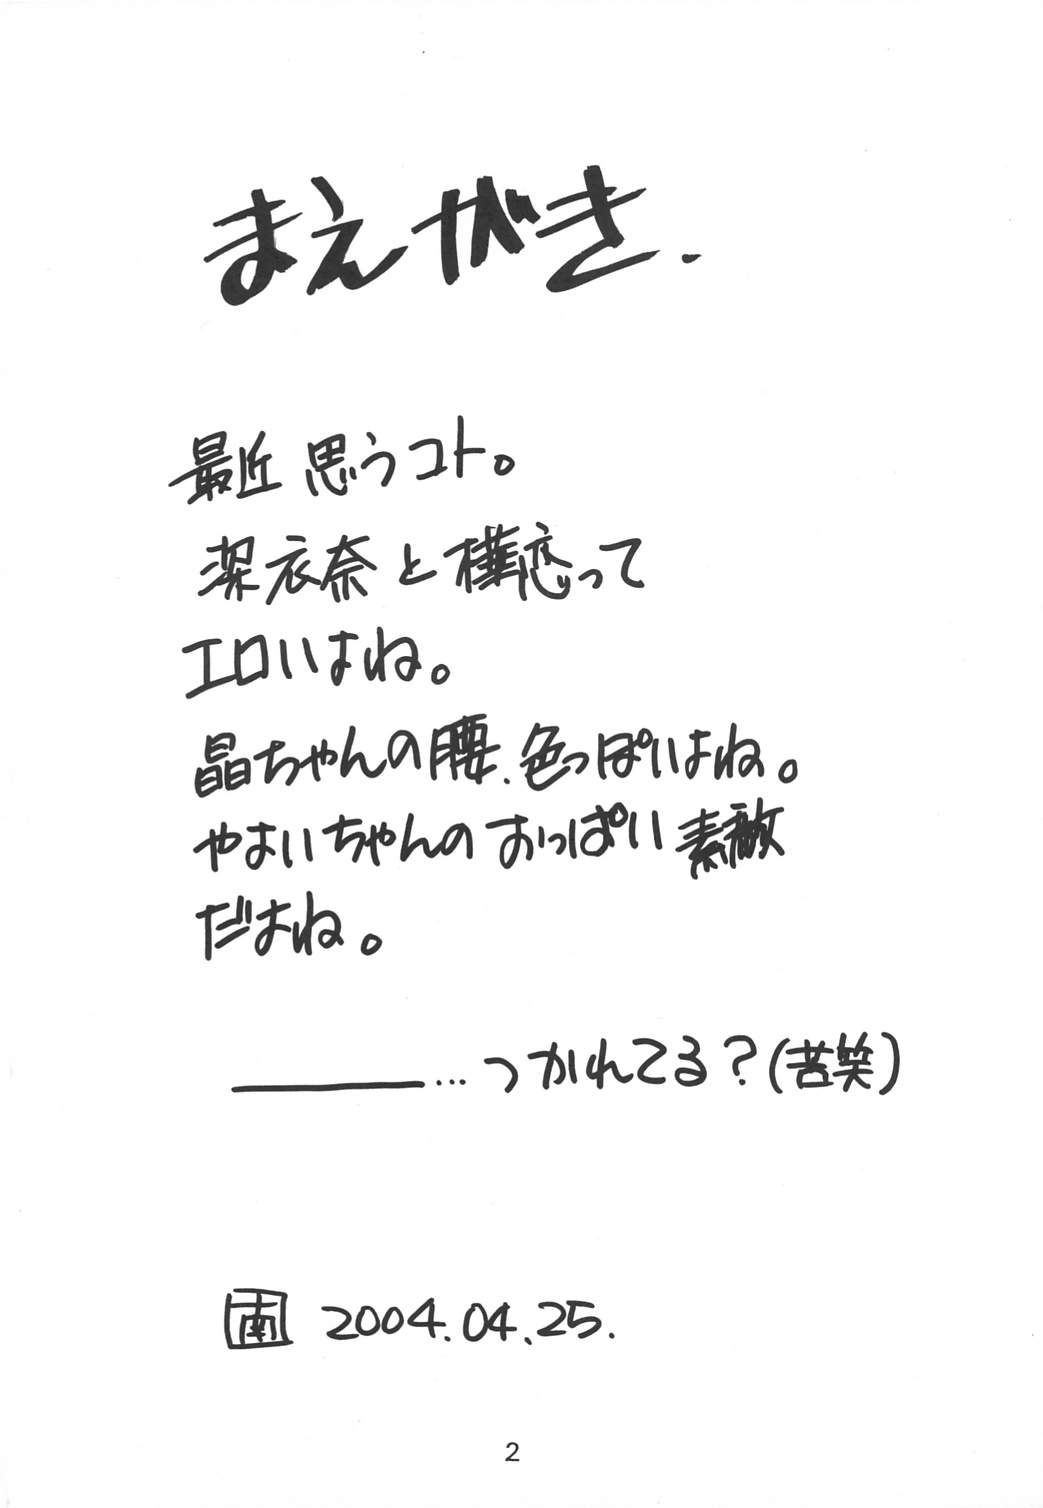 まえがき.
最近思うコト。
潔衣奈と樺恋って
エロいよね。
晶ちゃんの腰、色っぽいよね。
やよいちゃんのおっぱい素敵
だよね。
———…つかれてる?(苦笑)
南 2004.04.25.
2